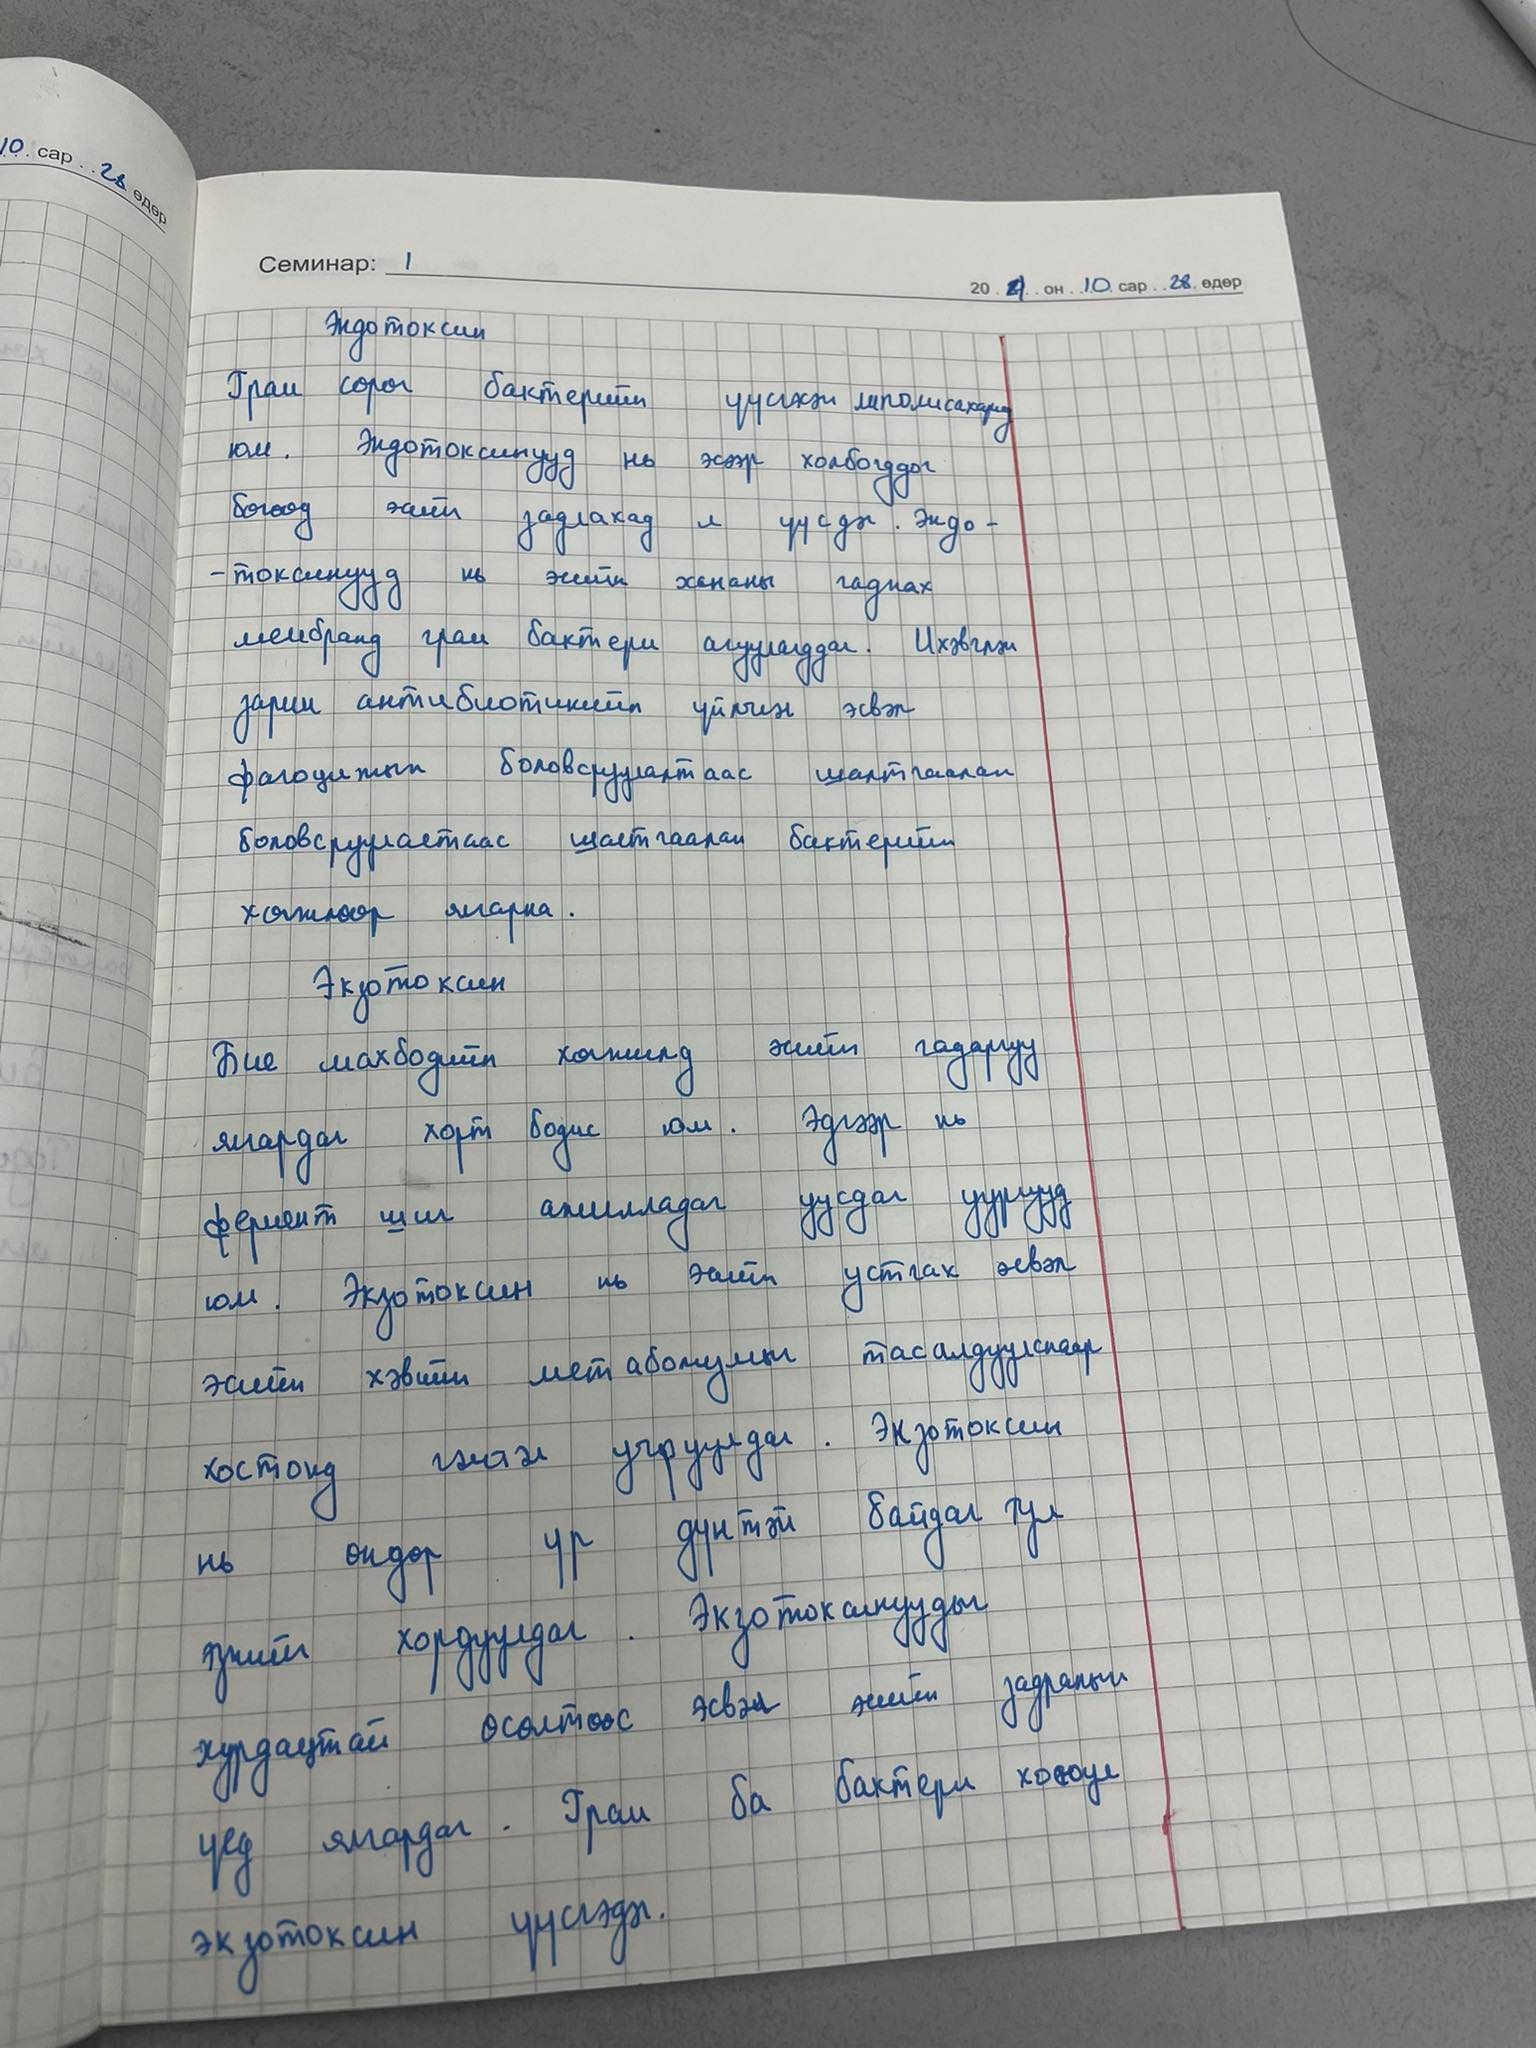 10 сар 28 өдөр
Семинар: 1
20 21 он 10 сар 28 өдөр
Эндотоксин
Грам сөрөг бактерийн үүсгэсэн липополисахарид
юм. Эндотоксинууд нь эсээр холбогддог
бөгөөд эсийг задлахад л үүсдэг. Эндо-
-токсинууд нь эсийн хананы гаднах
мембранд грам бактери агуулагддаг. Ихэвчлэн
зарим антибиотикийн үйлчлэл эсвэл
фагоцитын боловсруулалтаас шалтгаалан
боловсруулалтаас шалтгаалан бактерийн
хөгжлөөр ялгарна.
Экзотоксин
Бие махбодийн хөгжилд эсийн гадаргуу
ялгардаг хорт бодис юм. Эдгээр нь
фермент шиг ажилладаг уусдаг уургууд
юм. Экзотоксин нь эсийг устгах эсвэл
эсийн хэвийн метаболизмыг тасалдуулснаар
хостонд гэмтэл учруулдаг. Экзотоксин
нь өндөр үр дүнтэй байдаг тул
эзнийг хордуулдаг. Экзотоксинуудыг
хурдацтай өсөлтөөс эсвэл эсийн задралын
үед ялгардаг. Грам ба бактери хоёул
экзотоксин үүсгэдэг.